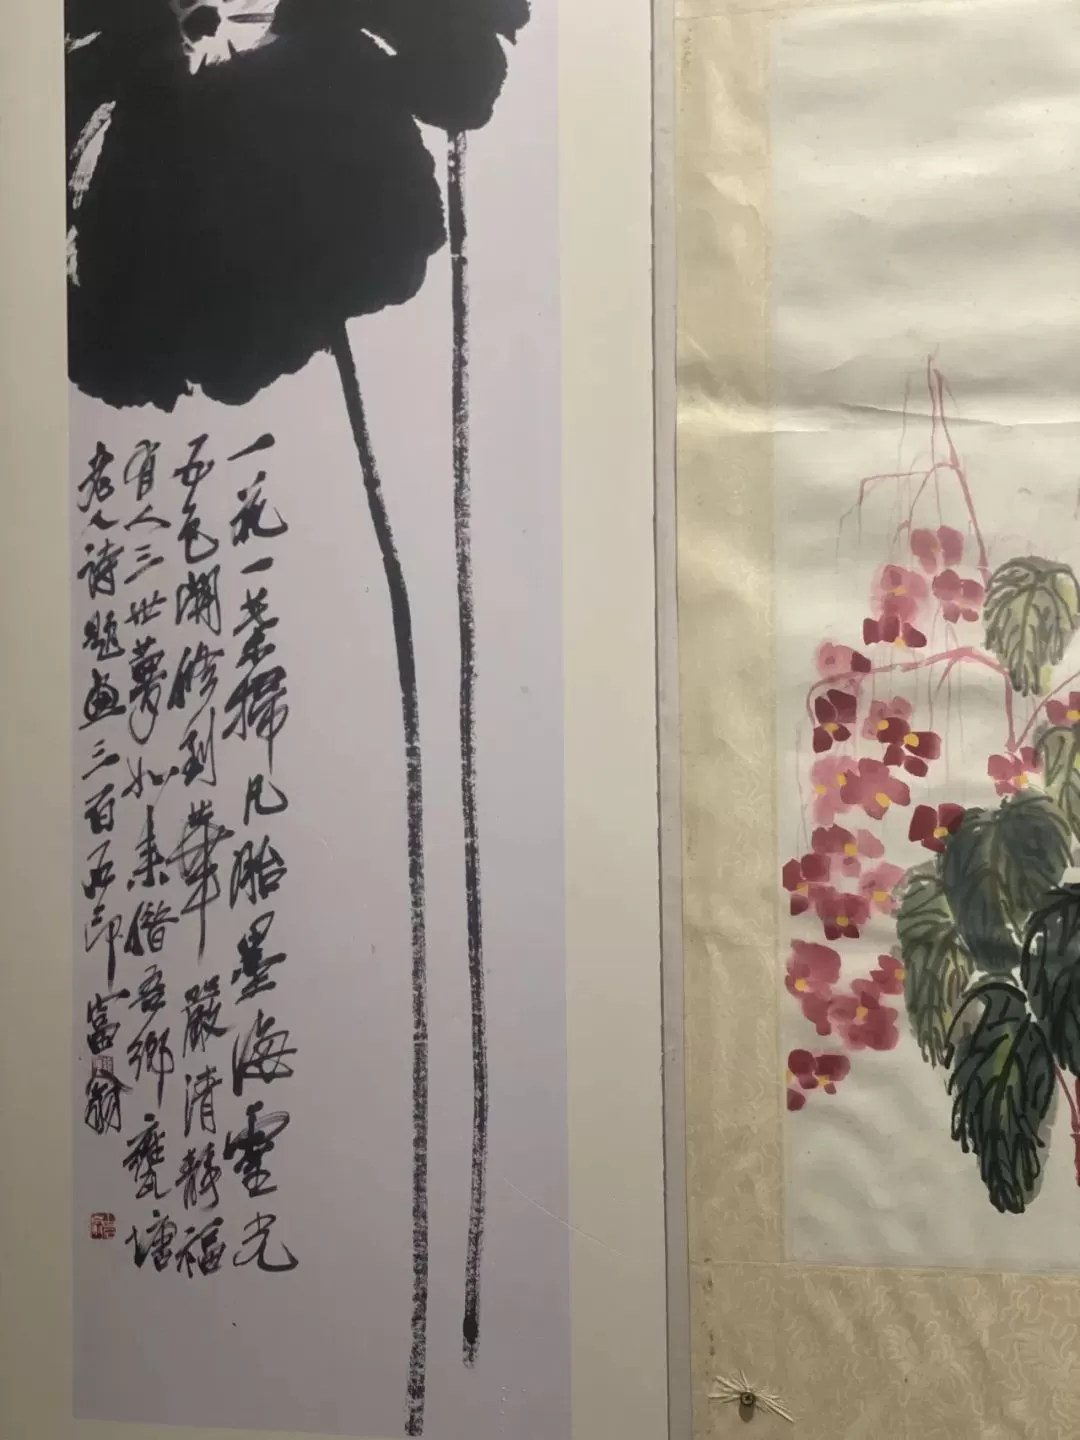 一花一葉掃凡胎墨海靈光
五色開修到華嚴清靜福
有人三世夢如來借吾鄉甕塘
老人詩題畫三百石印富翁